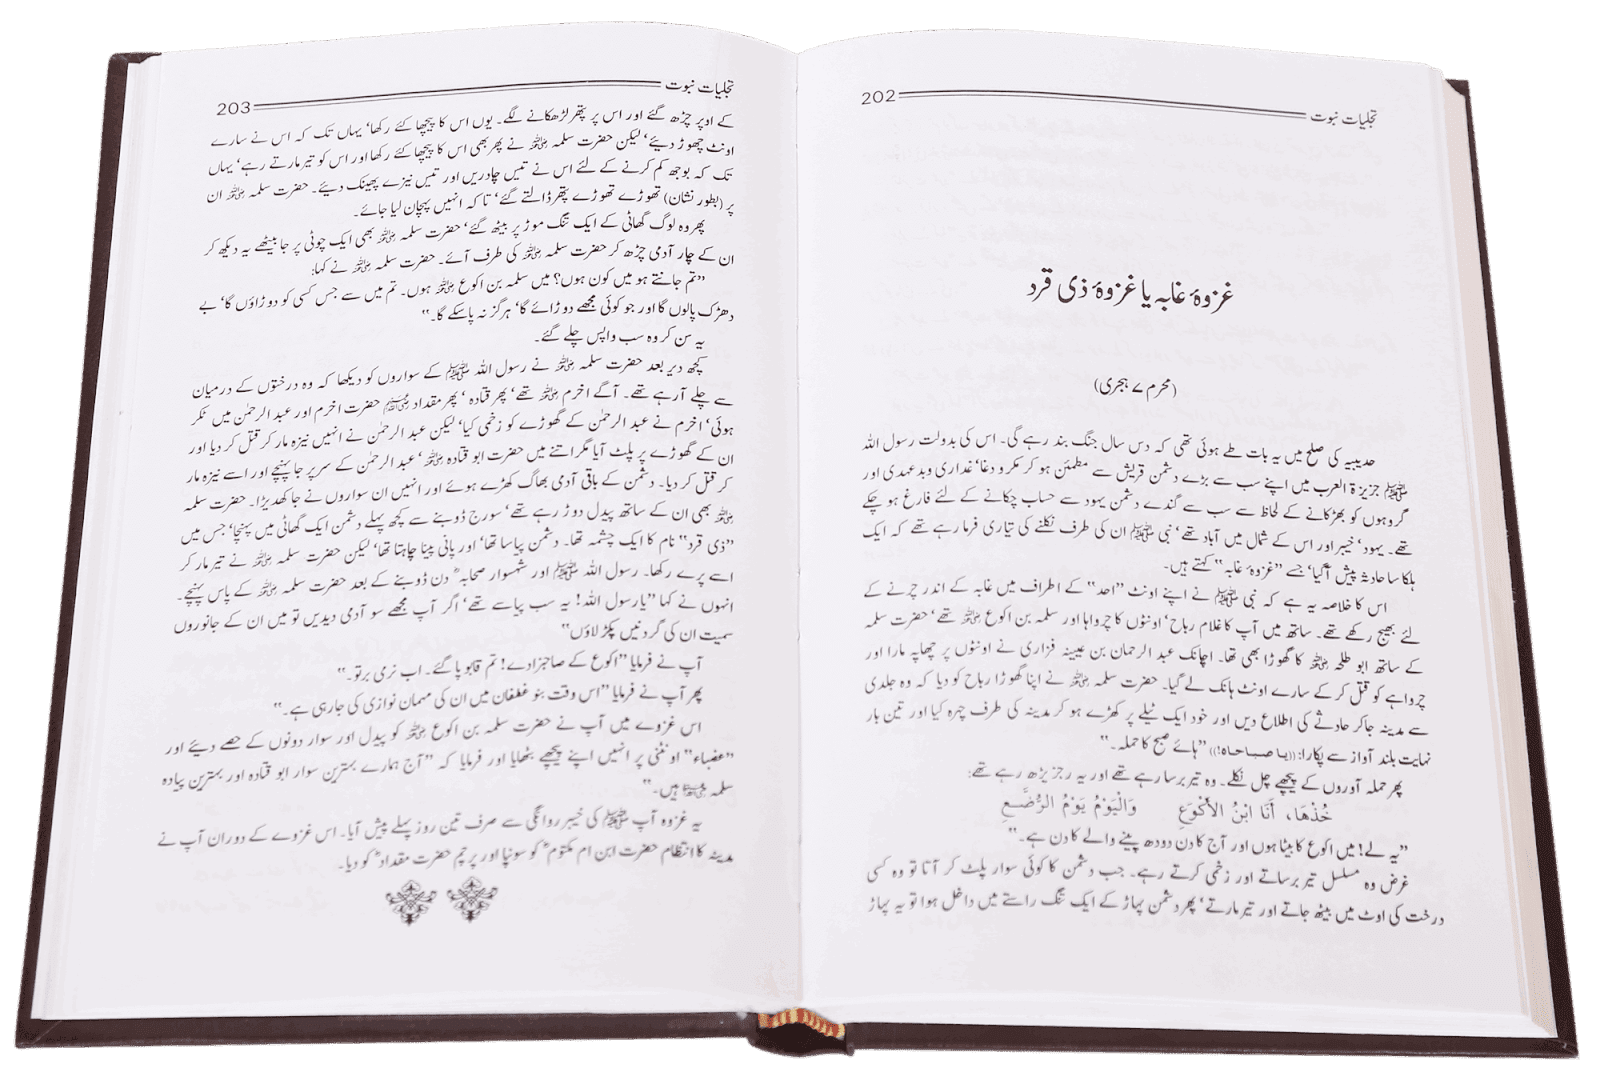 تجلیات نبوت
202
غزوۂ غابہ یا غزوۂ ذی قرد
(محرم ۷ ہجری)
حدیبیہ کی صلح میں یہ بات طے ہوئی تھی کہ دس سال جنگ بند رہے گی۔ اس کی بدولت رسول اللہ
ﷺ جزیرۃ العرب میں اپنے سب سے بڑے دشمن قریش سے مطمئن ہو کر مکر و دغا‘ غداری و بدعہدی اور
گروہوں کو بھڑکانے کے لحاظ سے سب سے گندے دشمن یہود سے حساب چکانے کے لئے فارغ ہو چکے
تھے۔ یہود‘ خیبر اور اس کے شمال میں آباد تھے‘ نبی ﷺ ان کی طرف نکلنے کی تیاری فرما رہے تھے کہ ایک
ہلکا سا حادثہ پیش آگیا‘ جسے ”غزوۂ غابہ“ کہتے ہیں۔
اس کا خلاصہ یہ ہے کہ نبی ﷺ نے اپنے اونٹ ”احد“ کے اطراف میں غابہ کے اندر چرنے کے
لئے بھیج رکھے تھے۔ ساتھ میں آپ کا غلام رباح‘ اونٹوں کا چرواہا اور سلمہ بن اکوع رضی اللہ عنہ تھے‘ حضرت سلمہ
کے ساتھ ابو طلحہ رضی اللہ عنہ کا گھوڑا بھی تھا۔ اچانک عبد الرحمان بن عیینہ فزاری نے اونٹوں پر چھاپہ مارا اور
چرواہے کو قتل کر کے سارے اونٹ ہانک لے گیا۔ حضرت سلمہ رضی اللہ عنہ نے اپنا گھوڑا رباح کو دیا کہ وہ جلدی
سے مدینہ جاکر حادثے کی اطلاع دیں اور خود ایک ٹیلے پر کھڑے ہو کر مدینہ کی طرف چہرہ کیا اور تین بار
نہایت بلند آواز سے پکارا: ((یا صباحاہ!)) ”ہائے صبح کا حملہ۔“
پھر حملہ آوروں کے پیچھے چل نکلے۔ وہ تیر برسا رہے تھے اور یہ رجز پڑھ رہے تھے:
خُذْهَا، أَنَا ابْنُ الأَكْوَعِ وَالْيَوْمُ يَوْمُ الرُّضَّعِ
”یہ لے! میں اکوع کا بیٹا ہوں اور آج کا دن دودھ پینے والے کا دن ہے۔“
غرض وہ مسلسل تیر برساتے اور زخمی کرتے رہے۔ جب دشمن کا کوئی سوار پلٹ کر آتا تو وہ کسی
درخت کی اوٹ میں بیٹھ جاتے اور تیر مارتے‘ پھر دشمن پہاڑ کے ایک تنگ راستے میں داخل ہوا تو یہ پہاڑ
تجلیات نبوت
203
کے اوپر چڑھ گئے اور اس پر پتھر لڑھکانے لگے۔ یوں اس کا پیچھا کئے رکھا‘ یہاں تک کہ اس نے سارے
اونٹ چھوڑ دیئے‘ لیکن حضرت سلمہ رضی اللہ عنہ نے پھر بھی اس کا پیچھا کئے رکھا اور اس کو تیر مارتے رہے‘ یہاں
تک کہ بوجھ کم کرنے کے لئے اس نے تیس چادریں اور تیس نیزے پھینک دیئے۔ حضرت سلمہ رضی اللہ عنہ ان
پر (بطور نشان) تھوڑے تھوڑے پتھر ڈالتے گئے‘ تا کہ انہیں پہچان لیا جائے۔
پھر وہ لوگ گھاٹی کے ایک تنگ موڑ پر بیٹھ گئے‘ حضرت سلمہ رضی اللہ عنہ بھی ایک چوٹی پر جا بیٹھے یہ دیکھ کر
ان کے چار آدمی چڑھ کر حضرت سلمہ رضی اللہ عنہ کی طرف آئے۔ حضرت سلمہ رضی اللہ عنہ نے کہا:
”تم جانتے ہو میں کون ہوں؟ میں سلمہ بن اکوع رضی اللہ عنہ ہوں۔ تم میں سے جس کسی کو دوڑاؤں گا‘ بے
دھڑک پالوں گا اور جو کوئی مجھے دوڑائے گا‘ ہرگز نہ پاسکے گا۔“
یہ سن کر وہ سب واپس چلے گئے۔
کچھ دیر بعد حضرت سلمہ رضی اللہ عنہ نے رسول اللہ ﷺ کے سواروں کو دیکھا کہ وہ درختوں کے درمیان
سے چلے آرہے تھے۔ آگے اخرم رضی اللہ عنہ تھے‘ پھر قتادہ‘ پھر مقداد رضی اللہ عنہم حضرت اخرم اور عبد الرحمٰن میں ٹکر
ہوئی‘ اخرم نے عبد الرحمٰن کے گھوڑے کو زخمی کیا‘ لیکن عبد الرحمٰن نے انہیں نیزہ مار کر قتل کر دیا اور
ان کے گھوڑے پر پلٹ آیا مگر اتنے میں حضرت ابو قتادہ رضی اللہ عنہ‘ عبد الرحمٰن کے سر پر جا پہنچے اور اسے نیزہ مار
کر قتل کر دیا۔ دشمن کے باقی آدمی بھاگ کھڑے ہوئے اور انہیں ان سواروں نے جا کھدیڑا۔ حضرت سلمہ
رضی اللہ عنہ بھی ان کے ساتھ پیدل دوڑ رہے تھے‘ سورج ڈوبنے سے کچھ پہلے دشمن ایک گھاٹی میں پہنچا‘ جس میں
”ذی قرد“ نام کا ایک چشمہ تھا۔ دشمن پیاسا تھا‘ اور پانی پینا چاہتا تھا‘ لیکن حضرت سلمہ رضی اللہ عنہ نے تیر مار کر
اسے پرے رکھا۔ رسول اللہ ﷺ اور شہسوار صحابہ دن ڈوبنے کے بعد حضرت سلمہ رضی اللہ عنہ کے پاس پہنچے۔
انہوں نے کہا ”یا رسول اللہ! یہ سب پیاسے تھے‘ اگر آپ مجھے سو آدمی دیدیں تو میں ان کے جانوروں
سمیت ان کی گردنیں پکڑ لاؤں“
آپ نے فرمایا ”اکوع کے صاحبزادے! تم قابو پا گئے۔ اب نرمی برتو۔“
پھر آپ نے فرمایا ”اس وقت بنو غطفان میں ان کی مہمان نوازی کی جارہی ہے۔“
اس غزوے میں آپ نے حضرت سلمہ بن اکوع رضی اللہ عنہ کو پیدل اور سوار دونوں کے حصے دیئے اور
”عضباء“ اونٹنی پر انہیں اپنے پیچھے بٹھایا اور فرمایا کہ ”آج ہمارے بہترین سوار ابو قتادہ اور بہترین پیادہ
سلمہ رضی اللہ عنہما ہیں۔“
یہ غزوہ آپ ﷺ کی خیبر روانگی سے صرف تین روز پہلے پیش آیا۔ اس غزوے کے دوران آپ نے
مدینہ کا انتظام حضرت ابن ام مکتوم کو سونپا اور پرچم حضرت مقداد کو دیا۔